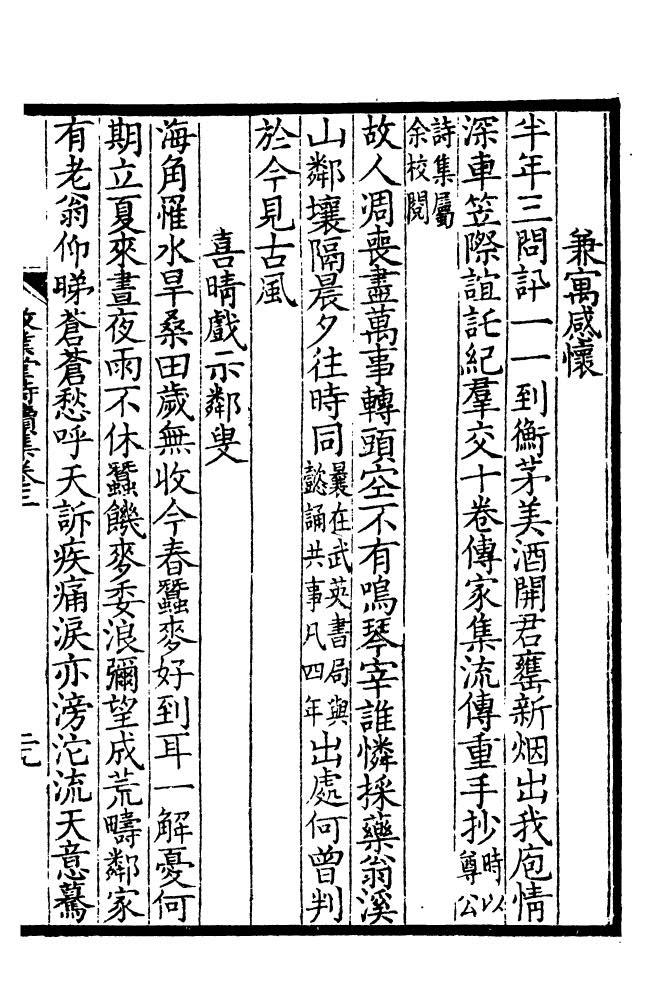 兼寓感懷
半年三問訊一一到衡茅美酒開君罋新烟出我庖情
深車笠際誼託紀羣交十卷傳家集流傳重手抄時以尊公
詩集屬余校閱
故人凋喪盡萬事轉頭空不有鳴琴宰誰憐採藥翁溪
山鄰壤隔晨夕往時同曩在武英書局與懿誦共事凡四年出處何曾判
於今見古風
喜晴戲示鄰叟
海角罹水旱桑田歲無收今春蠶麥好到耳一解憂何
期立夏來晝夜雨不休蠶饑麥委浪彌望成荒疇鄰家
有老翁仰睇蒼蒼愁呼天訴疾痛淚亦滂沱流天意驀
敬業堂詩續集卷三